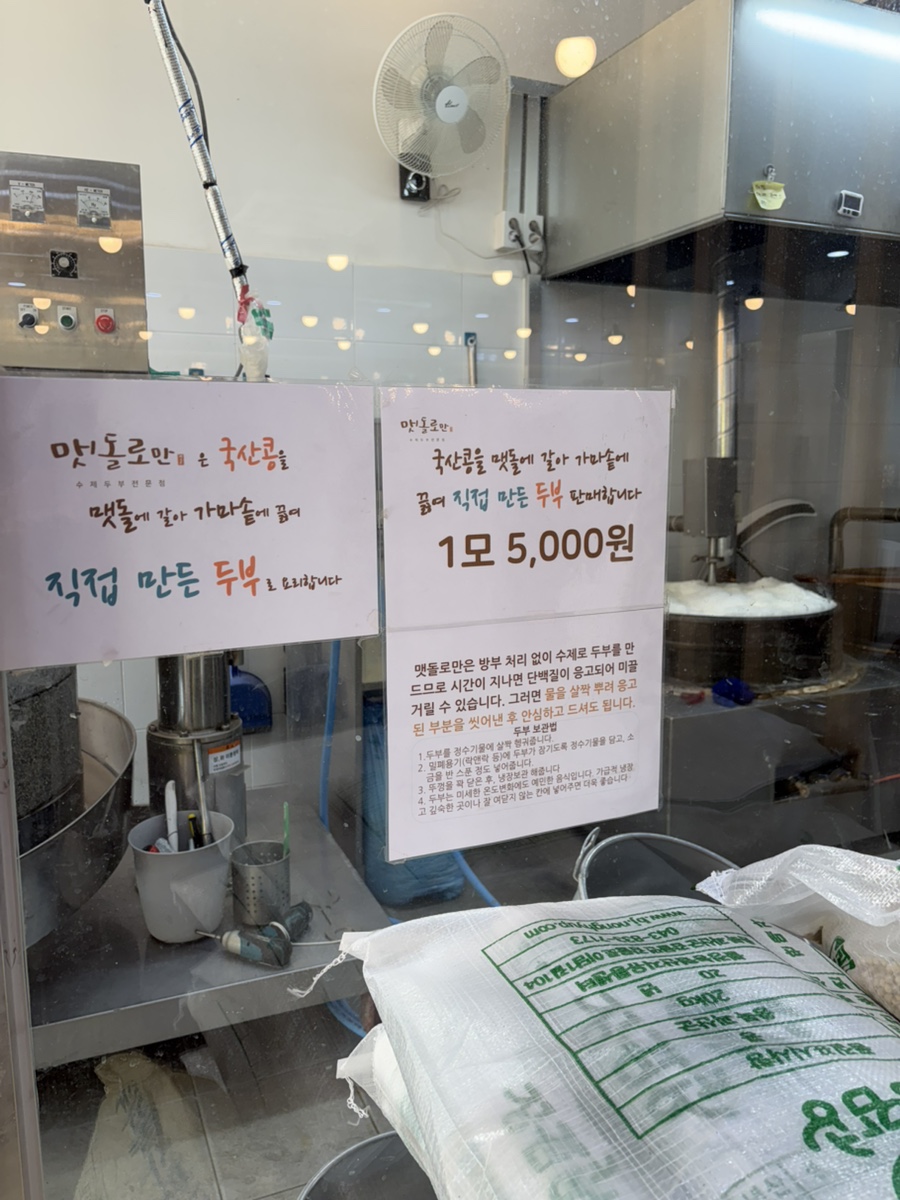 맷돌로만은 국산콩을
수제두부전문점
맷돌에 갈아 가마솥에 끓여
직접 만든 두부로 요리합니다
맷돌로만
수제두부전문점
국산콩을 맷돌에 갈아 가마솥에
끓여 직접 만든 두부 판매합니다
1모 5,000원
맷돌로만은 방부 처리 없이 수제로 두부를 만
드므로 시간이 지나면 단백질이 응고되어 미끌
거릴 수 있습니다. 그러면 물을 살짝 뿌려 응고
된 부분을 씻어낸 후 안심하고 드셔도 됩니다.
두부 보관법
1.두부를 정수기물에 살짝 헹궈줍니다.
2. 밀폐용기(락앤락 등)에 두부가 잠기도록 정수기물을 담고, 소
금을 반 스푼 정도 넣어줍니다.
3. 뚜껑을 꽉 닫은 후, 냉장보관 해줍니다
4. 두부는 미세한 온도변화에도 예민한 음식입니다. 가급적 냉장
고 깊숙한 곳이나 잘 여닫지 않는 칸에 넣어주면 더욱 좋습니다
품질표시사항
콩
충북 괴산군
20kg
20 년